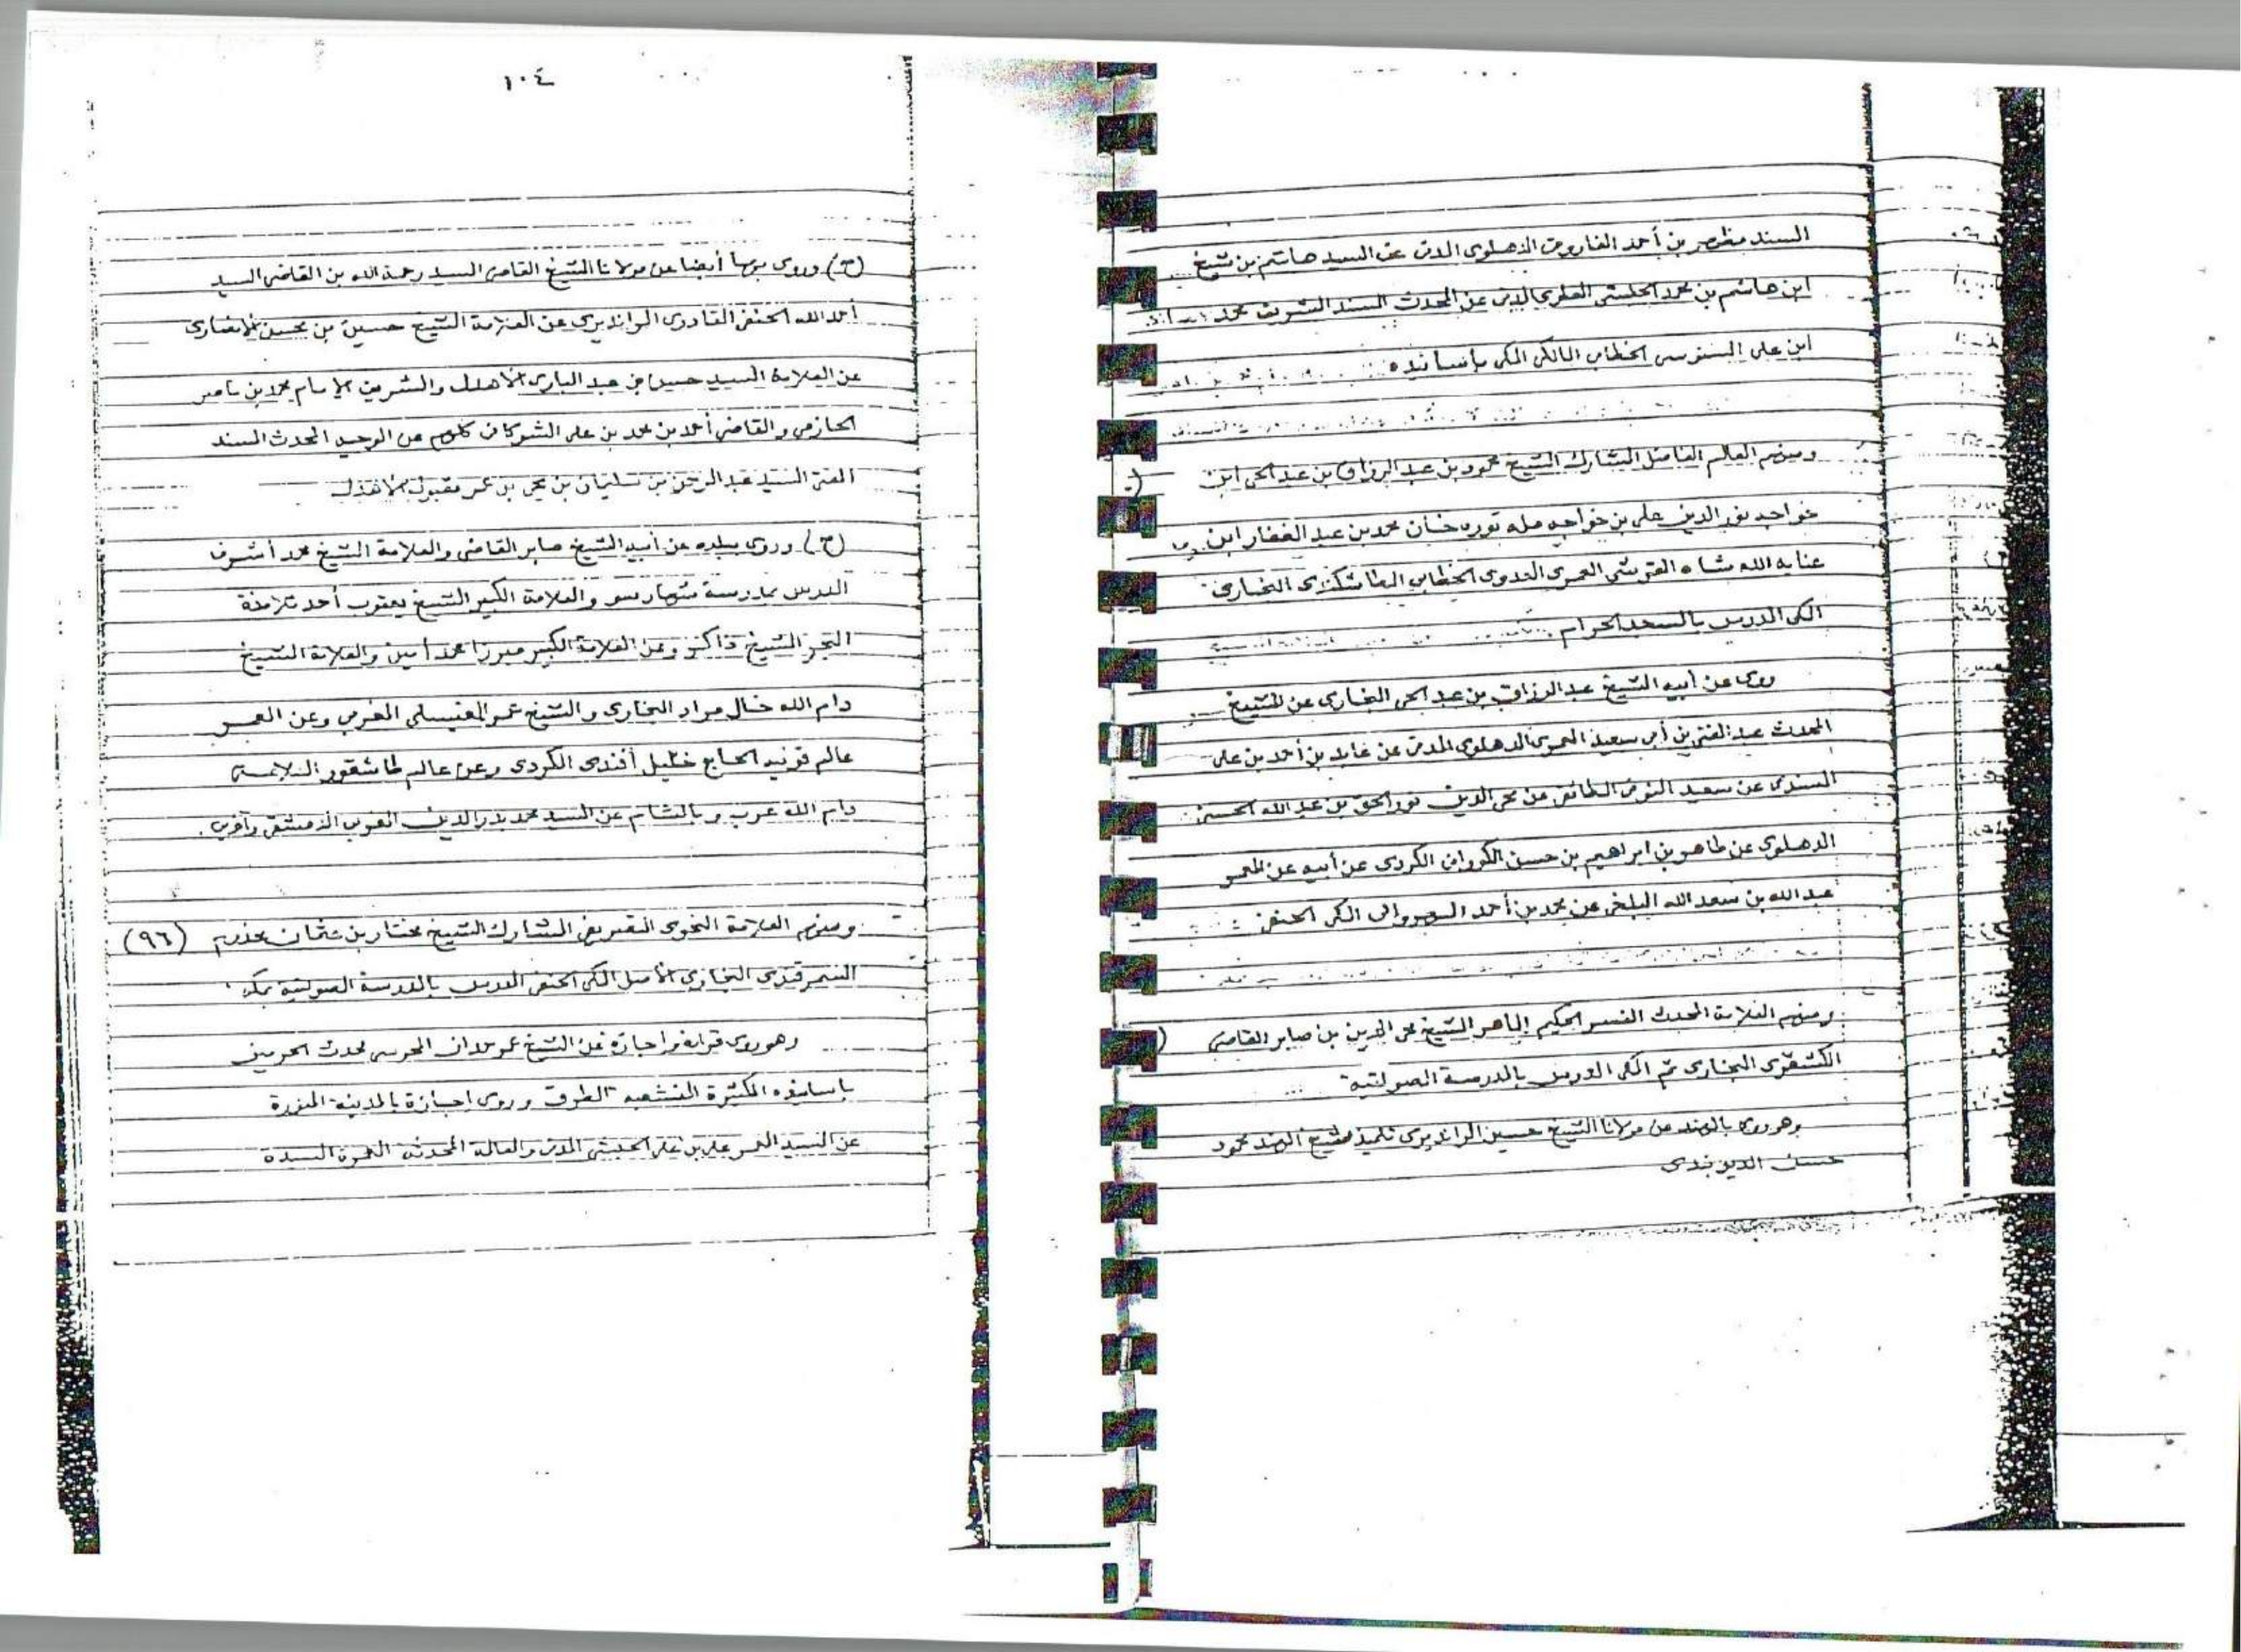 السند مظهر بن أحمد الفاروقى الدهلوى المدنى عن السيد هاشم بن شيخ
ابن هاشم بن محمد الحبشى العلوى المدنى عن المحدث السند الشريف محمد
ابن على السنوسى الخطابى المالكى المكى بأسانيده
ومنهم العالم الفاضل المشارك الشيخ محمود بن عبد الرزاق بن عبد الحى ابن
خواجه نور الدين على بن خواجه مله توره خان محمد بن عبد الغفار ابن
عناية الله شاه القريشى العمرى العدوى الخطابى الطاشكندى البخارى
المكى المدرس بالمسجد الحرام
روى عن أبيه الشيخ عبد الرزاق بن عبد الحى البخارى عن الشيخ
المحدث عبد الغنى بن أبى سعيد العمرى الدهلوى المدنى عن عابد بن أحمد بن على
السندى عن سعيد الطائفى عن محى الدين نور الحق بن عبد الله الحسينى
الدهلوى عن طاهر بن ابراهيم بن حسن الكورانى الكردى عن أبيه عن المعمر
عبد الله بن سعد الله البلخى عن محمد بن أحمد النهروالى المكى الحنفى
ومنهم العلامة المحدث المفسر الحكيم الماهر الشيخ محى الدين بن صابر القاضى
الكشقرى البخارى ثم المكى المدرس بالمدرسة الصولتية
وهو روى بالهند عن مولانا الشيخ حسين الرانديرى تلميذ شيخ الهند محمود
حسن الديوبندى
١٠٤
(ح) وروى بها أيضا عن مولانا الشيخ القاضى السيد رحمة الله بن القاضى السيد
أحمد الله الحنفى القادرى الرانديرى عن العلامة الشيخ حسين بن محسن الأنصارى
عن العلامة السيد حسن بن عبد البارى الأهدل والشريف الإمام محمد بن ناصر
الحازمى والقاضى أحمد بن محمد بن على الشوكانى كلهم عن الوجيه المحدث السند
المفتى السيد عبد الرحمن بن سليمان بن يحيى بن عمر مقبول الأهدل
(ح) وروى ببلده عن أبيه الشيخ صابر القاضى والعلامة الشيخ محمد أشرف
المدرس بمدرسة والعلامة الكبير الشيخ يعقوب أحد تلامذة
الشيخ ذاكر وعن العلامة الكبير ميرزا محمد أمين والعلامة الشيخ
دام الله خال مراد البخارى والشيخ عمر وعن المعمر
عالم قونيه الحاج خليل أفندى الكردى وعن عالم
دام الله عرب وبالشام عن السيد محمد بدر الدين المغربى الدمشقى وآخرين.
ومنهم العلامة النحوى المشارك الشيخ مختار بن عثمان مخدوم (٩٦)
السمرقندى البخارى الأصل المكى الحنفى المدرس بالمدرسة الصولتية بمكة
وهو روى قراءة واجازة عن الشيخ عمر حمدان المحرسى محدث الحرمين
بأسانيده الكثيرة المتشعبة الطرق وروى اجازة بالمدينة المنورة
عن السيد المعمر على بن على الحبشى المدنى والعالمة المحدثة المعمرة السيدة